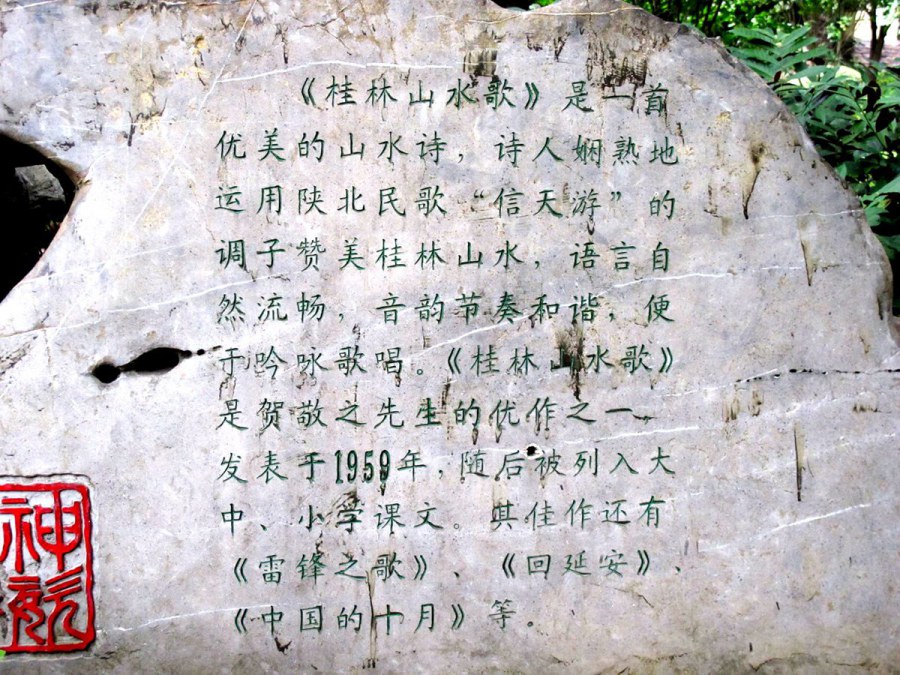 《桂林山水歌》是一首
优美的山水诗，诗人娴熟地
运用陕北民歌“信天游”的
调子赞美桂林山水，语言自
然流畅，音韵节奏和谐，便
于吟咏歌唱。《桂林山水歌》
是贺敬之先生的优作之一，
发表于1959年，随后被列入大
中、小学课文。其佳作还有
《雷锋之歌》、《回延安》、
《中国的十月》等。
神